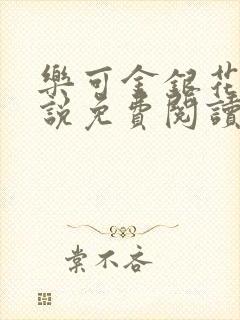 樂可金銀花
說免費閱讀
棠不吝